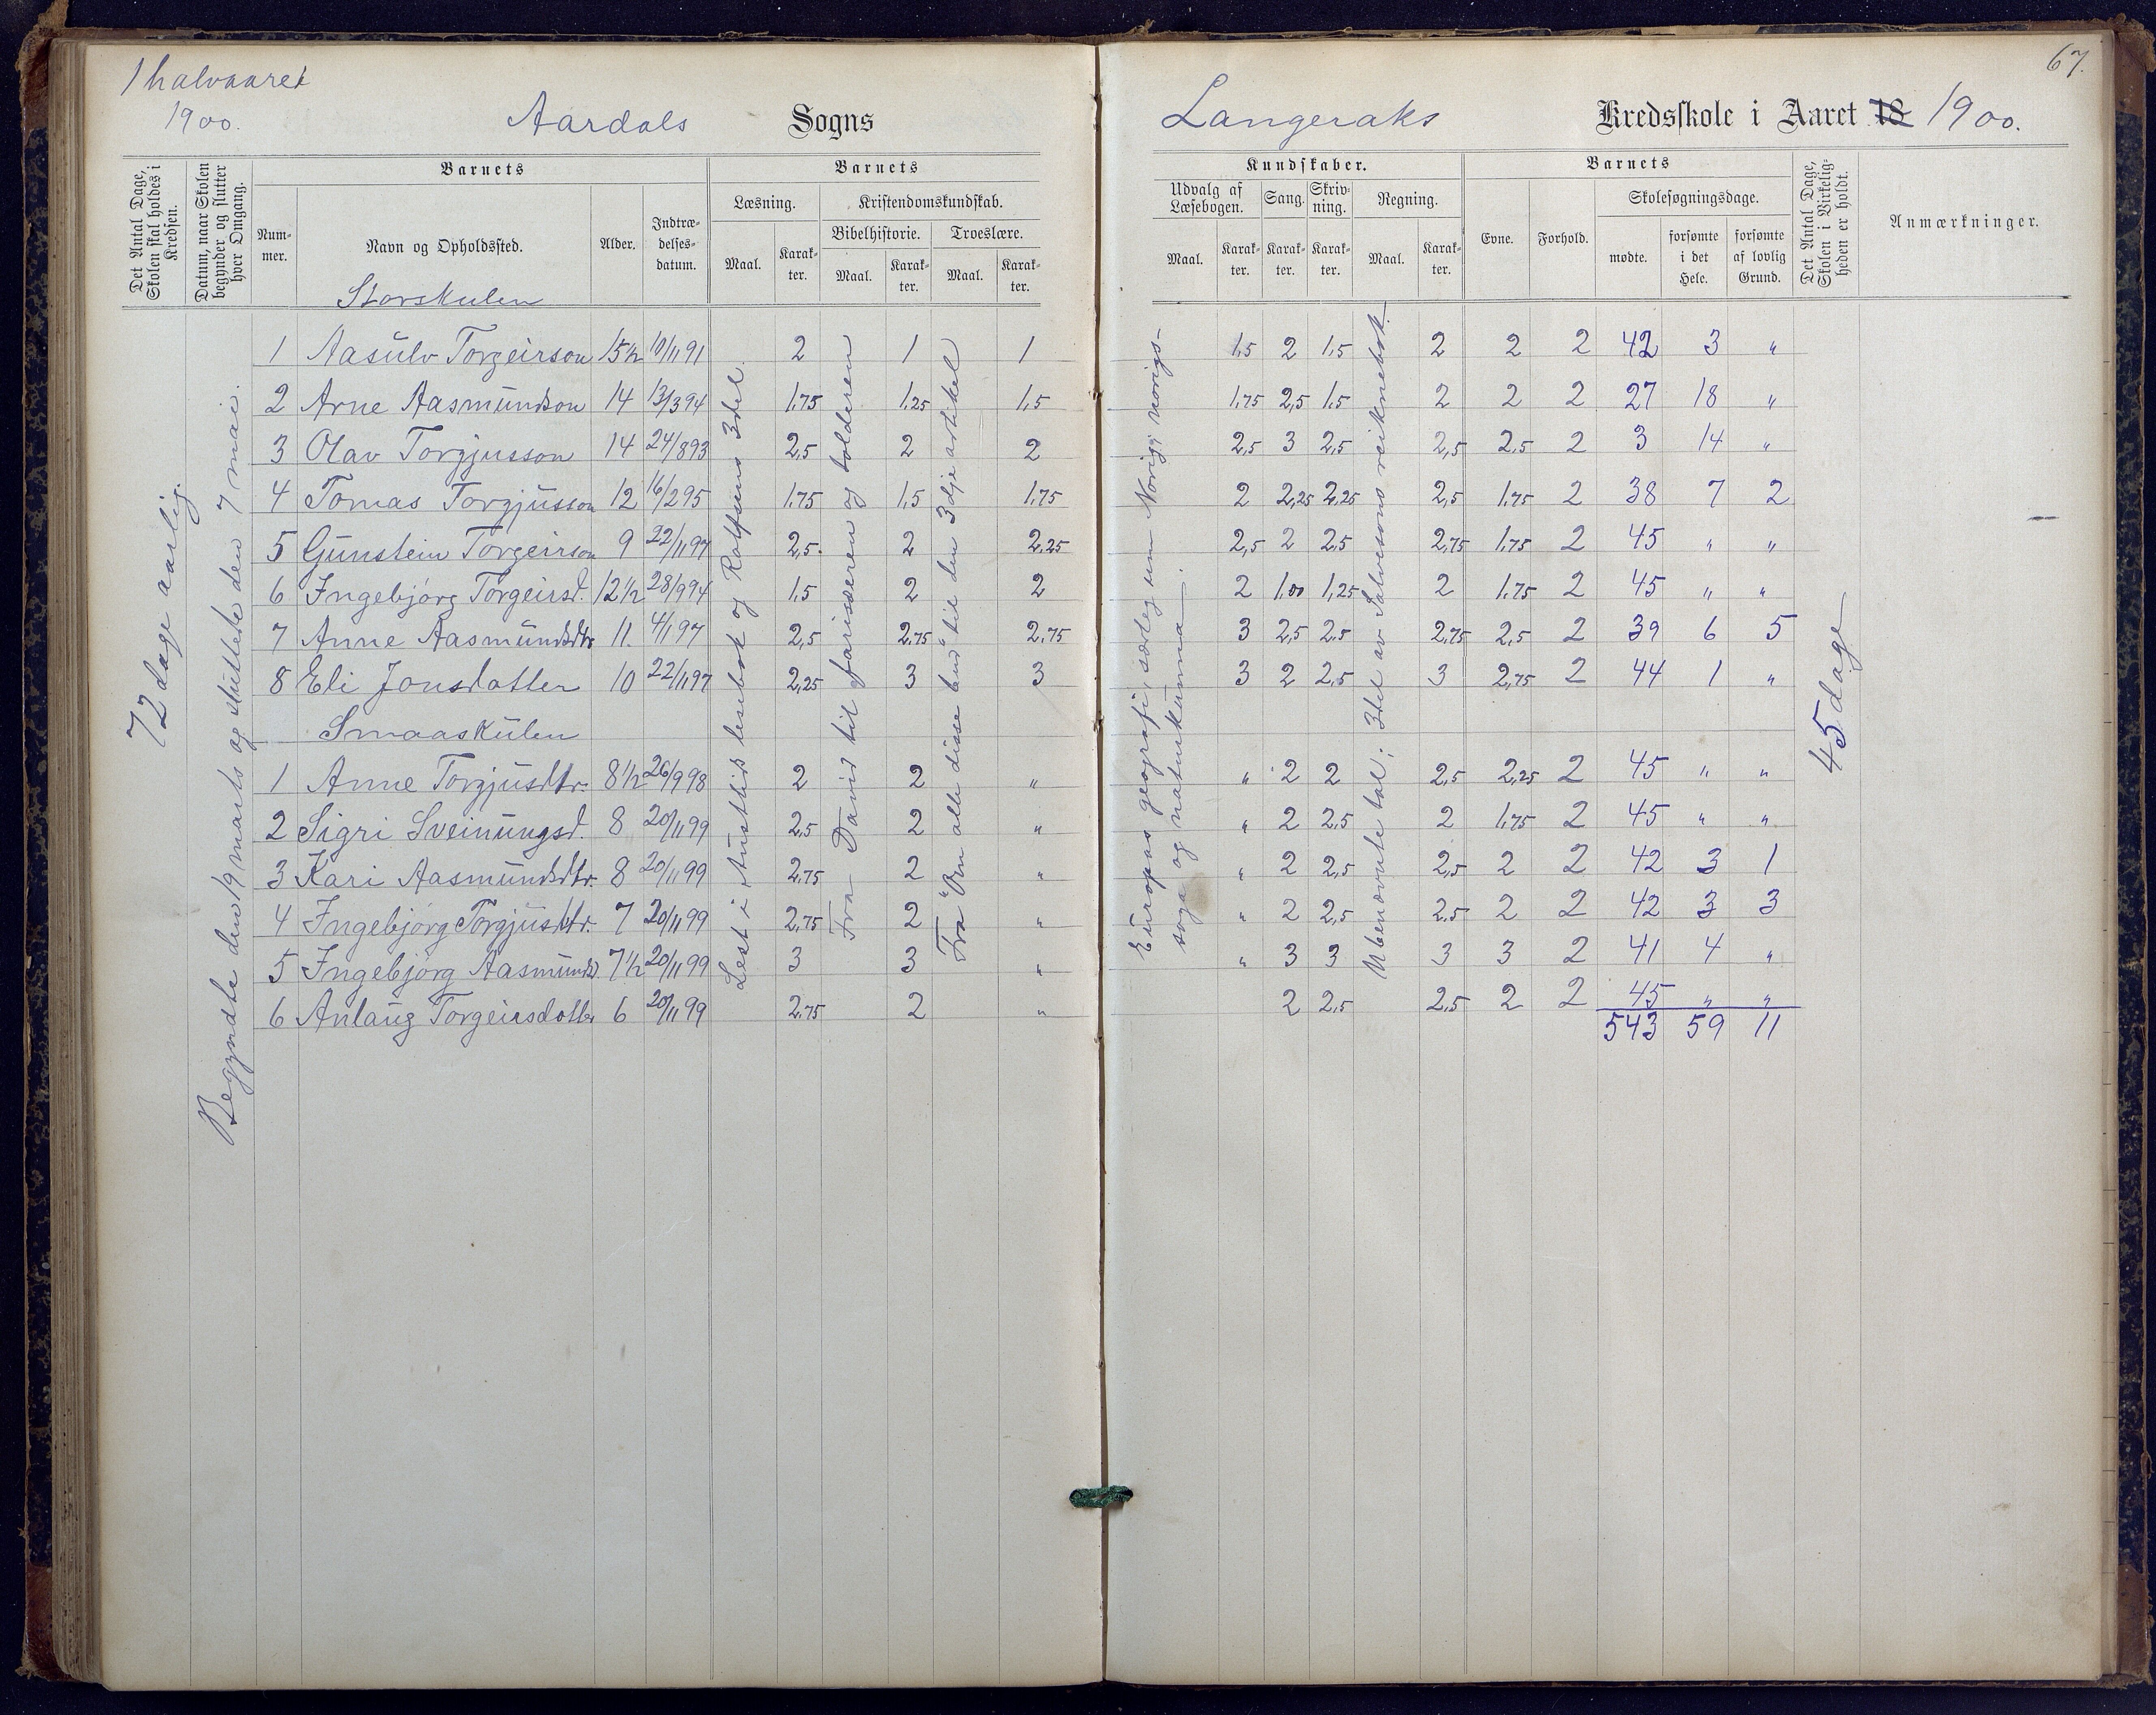 1 halvaaret
1900.
Aardals Sogns
Det Antal Dage, Skolen skal holdes i Kredsen.
Datum, naar Skolen begynder og slutter hver Omgang.
Barnets
Nummer.
Navn og Opholdssted.
Alder.
Indtrædelsesdatum.
Barnets
Læsning.
Maal.
Karakter.
Kristendomskundskab.
Bibelhistorie.
Maal.
Karakter.
Troeslære.
Maal.
Karakter.
72 dage aarlig.
Begyndte den 19 marts og sluttede den 7 mai.
Storskulen
1 Aasulv Torgeirson 15 1/2 10/11 91 2 1 1
2 Arne Aasmundson 14 13/3 94 1.75 1.25 1.5
3 Olav Torgjusson 14 24/8 93 2,5 2 2
4 Tomas Torgjusson 12 16/2 95 1.75 1,5 1.75
5 Gunstein Torgeirson 9 22/11 97 2,5. 2 2.25
6 Ingebjörg Torgeirsd. 12 1/2 28/9 94 1.5 2 2
7 Anne Aasmundsdtr 11. 4/1 97 2,5 2.75 2.75
8 Eli Jonsdatter 10 22/11 97 2,25 3 3
Smaaskulen
1 Anne Torgjusdtr. 8 1/2 26/9 98 2 2 "
2 Sigri Sveinungsd. 8 20/11 99 2,5 2 "
3 Kari Aasmundsdtr. 8 20/11 99 2.75 2 "
4 Ingebjörg Torgjusdtr. 7 20/11 99 2.75 2 "
5 Ingebjörg Aasmundsd. 7 1/2 20/11 99 3 3 "
6 Anlaug Torgeirsdotter 6 20/11 99 2.75 2 "
Lest i Austlid lesebok og Rolfsens 3del.
Fra David til farisæeren og tolderen
Fra "Om alle disse bud" til den 3dje artikel
67.
Langeraks Kredsskole i Aaret 18 1900.
Kundskaber.
Udvalg af Læsebogen.
Maal.
Karakter.
Sang.
Karakter.
Skrivning.
Karakter.
Regning.
Maal.
Karakter.
Barnets
Evne.
Forhold.
Skolesøgningsdage.
mødte.
forsømte i det Hele.
forsømte af lovlig Grund.
Det Antal Dage, Skolen i Virkeligheden er holdt.
Anmærkninger.
Europas geografi, særleg um Norig; norigssoga og naturkunna.
Ubenævnte tal; 3del av Salvesons reiknebok.
1,5 2 1,5 2 2 2 42 3 "
1.75 2,5 1.5 2 2 2 27 18 "
2,5 3 2,5 2,5 2.5 2 3 14 "
2 2,25 2,25 2,5 1.75 2 38 7 2
2,5 2 2,5 2.75 1.75 2 45 " "
2 1.00 1,25 2 1.75 2 45 " "
3 2,5 2.5 2.75 2,5 2 39 6 5
3 2 2,5 3 2,75 2 44 1 "
" 2 2 2,5 2,25 2 45 " "
" 2 2,5 2 1.75 2 45 " "
" 2 2,5 2,5 2 2 42 3 1
" 2 2,5 2.5 2 2 42 3 3
" 3 3 3 3 2 41 4 "
2 2,5 2,5 2 2 45 " "
543 59 11
45 dage